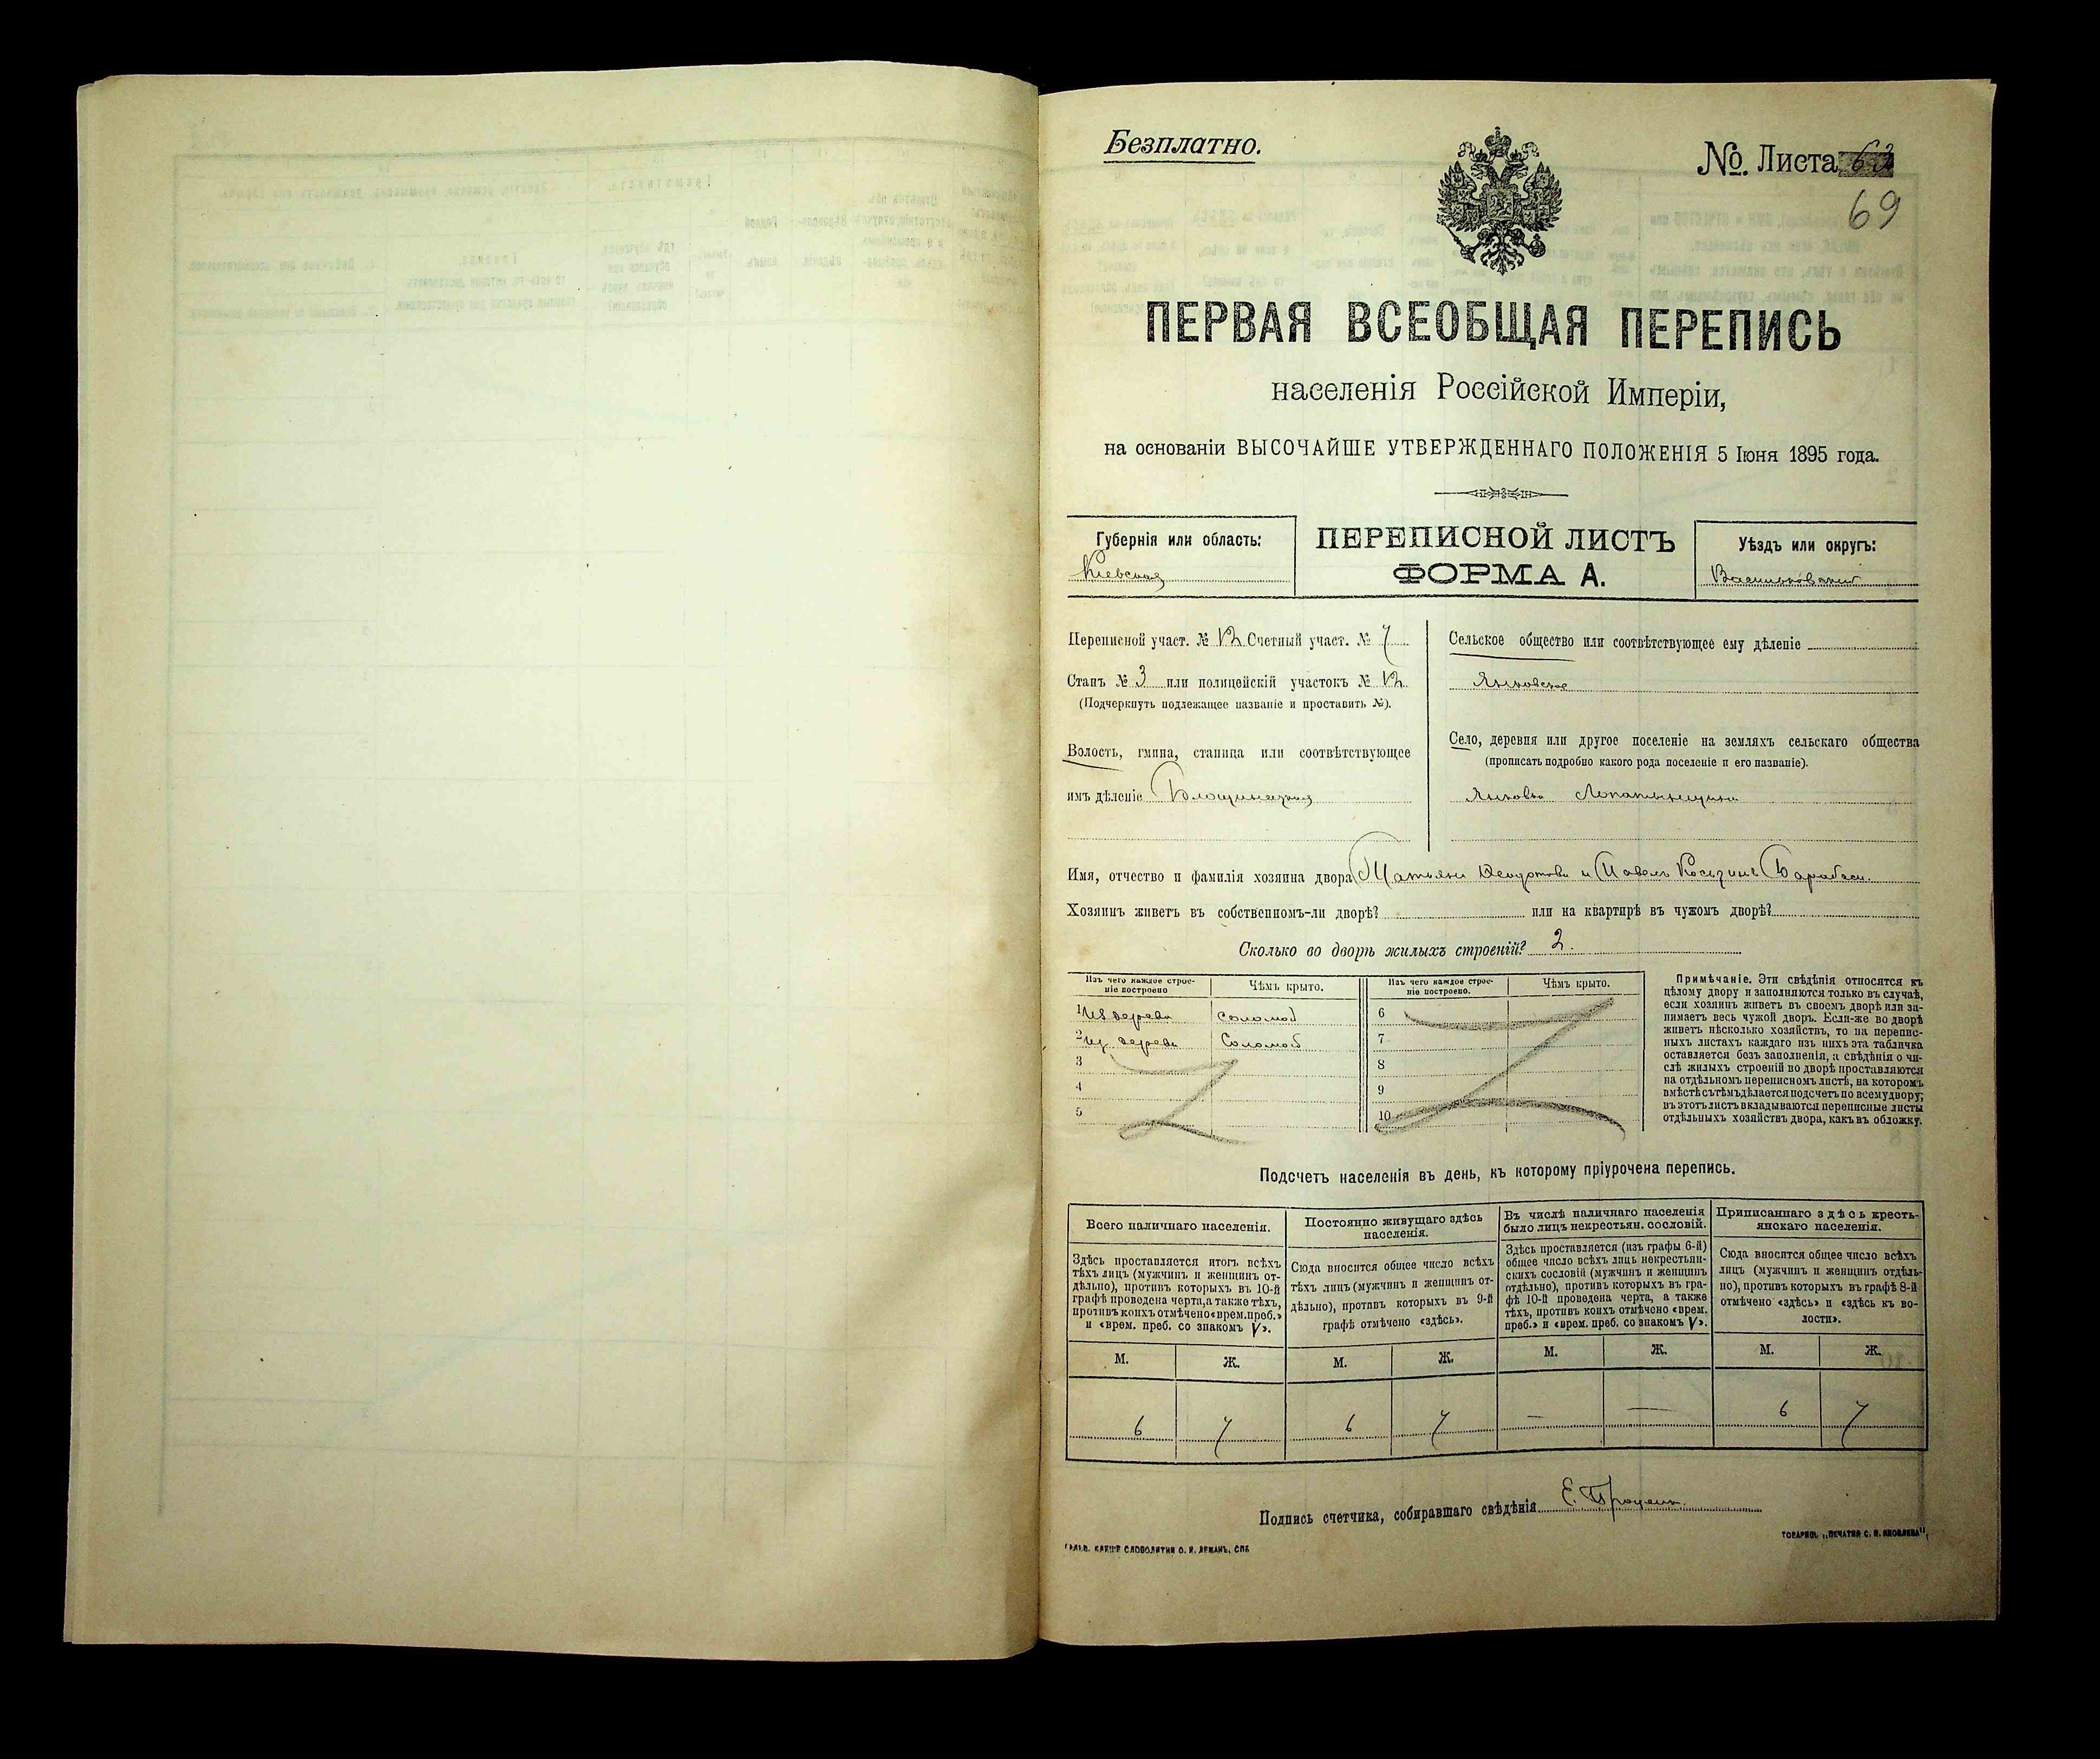 Безплатно.
№. Листа 63
69
ПЕРВАЯ ВСЕОБЩАЯ ПЕРЕПИСЬ
населенія Россійской Имперіи,
на основаніи ВЫСОЧАЙШЕ УТВЕРЖДЕННАГО ПОЛОЖЕНІЯ 5 Іюня 1895 года.
Губернія или область:
Кіевская
ПЕРЕПИСНОЙ ЛИСТЪ
ФОРМА А.
Уѣздъ или округъ:
Васильковскій
Переписной участ. № 12 Счетный участ. № 7
Станъ № 3 или полицейскій участокъ № 12
(Подчеркнуть подлежащее названіе и проставить №).
Волость, гмина, станица или соотвѣтствующее
имъ дѣленіе
Сельское общество или соотвѣтствующее ему дѣленіе
Янковское
Село, деревня или другое поселеніе на земляхъ сельскаго общества
(прописать подробно какого рода поселеніе и его названіе).
Янковка Лопатынщина
Имя, отчество и фамилія хозяина двора Татьяна и Павелъ Барабаси
Хозяинъ живетъ въ собственномъ-ли дворѣ? или на квартирѣ въ чужомъ дворѣ?
Сколько во дворѣ жилыхъ строеній? 2.
Изъ чего каждое строе-
ніе построено
Чѣмъ крыто.
1 Из дерева соломой
2 из дерева Соломой
3
4
5
Изъ чего каждое строе-
ніе построено.
Чѣмъ крыто.
6
7
8
9
10
Примѣчаніе. Эти свѣдѣнія относятся къ
цѣлому двору и заполняются только въ случаѣ,
если хозяинъ живетъ въ своемъ дворѣ или за-
нимаетъ весь чужой дворъ. Если-же во дворѣ
живетъ нѣсколько хозяйствъ, то на перепис-
ныхъ листахъ каждаго изъ нихъ эта табличка
оставляется безъ заполненія, а свѣдѣнія о чи-
слѣ жилыхъ строеній во дворѣ проставляются
на отдѣльномъ переписномъ листѣ, на которомъ
вмѣстѣ съ тѣмъ дѣлается подсчетъ по всему двору;
въ этотъ листъ вкладываются переписные листы
отдѣльныхъ хозяйствъ двора, какъ въ обложку.
Подсчетъ населенія въ день, къ которому пріурочена перепись.
Всего наличнаго населенія.
Здѣсь проставляется итогъ всѣхъ
тѣхъ лицъ (мужчинъ и женщинъ от-
дѣльно), противъ которыхъ въ 10-й
графѣ проведена черта, а также тѣхъ,
противъ коихъ отмѣчено «врем. преб.»
и «врем. преб. со знакомъ V».
Постоянно живущаго здѣсь
населенія.
Сюда вносится общее число всѣхъ
тѣхъ лицъ (мужчинъ и женщинъ от-
дѣльно), противъ которыхъ въ 9-й
графѣ отмѣчено «здѣсь».
Въ числѣ наличнаго населенія
было лицъ некрестьян. сословій.
Здѣсь проставляется (изъ графы 6-й)
общее число всѣхъ лицъ некрестьян-
скихъ сословій (мужчинъ и женщинъ
отдѣльно), противъ которыхъ въ гра-
фѣ 10-й проведена черта, а также
тѣхъ, противъ коихъ отмѣчено «врем.
преб.» и «врем. преб. со знакомъ V».
Приписаннаго здѣсь кресть-
янскаго населенія.
Сюда вносится общее число всѣхъ
лицъ (мужчинъ и женщинъ отдѣль-
но), противъ которыхъ въ графѣ 8-й
отмѣчено «здѣсь» и «здѣсь къ во-
лости».
М. Ж. М. Ж. М. Ж. М. Ж.
6 7 6 7 — — 6 7
Подпись счетчика, собиравшаго свѣдѣнія
ГАЛЬВ. КЛИШЕ СЛОВОЛИТНИ О. И. ЛЕМАНЪ, СПБ
ТОВАРИЩ. „ПЕЧАТНЯ С. П. ЯКОВЛЕВА"